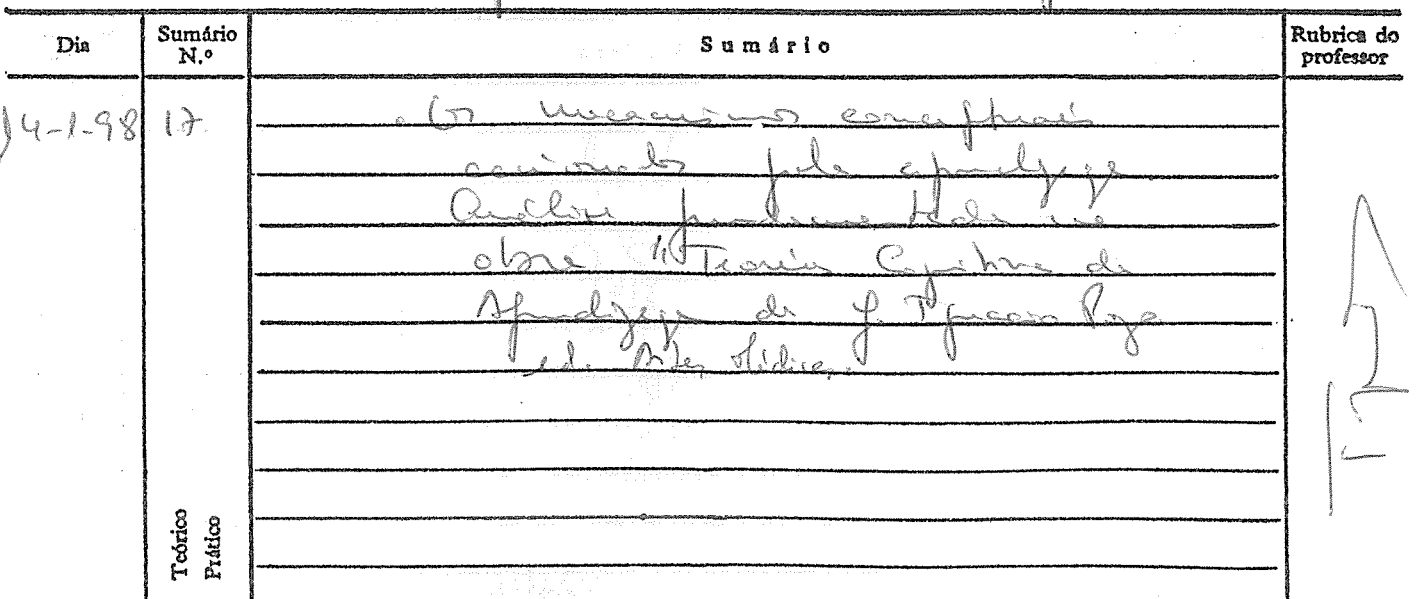 Dia Sumário N.º Sumário Rubrica do professor
14-1-98 17 . Os mecanismos conceptuais
accionados pela aprendizagem
Análise fundamentada na
obra "Teorias Cognitivas da
Aprendizagem de J. Ignacio Pozo
ed. Artes Médicas.
Teórico
Prático